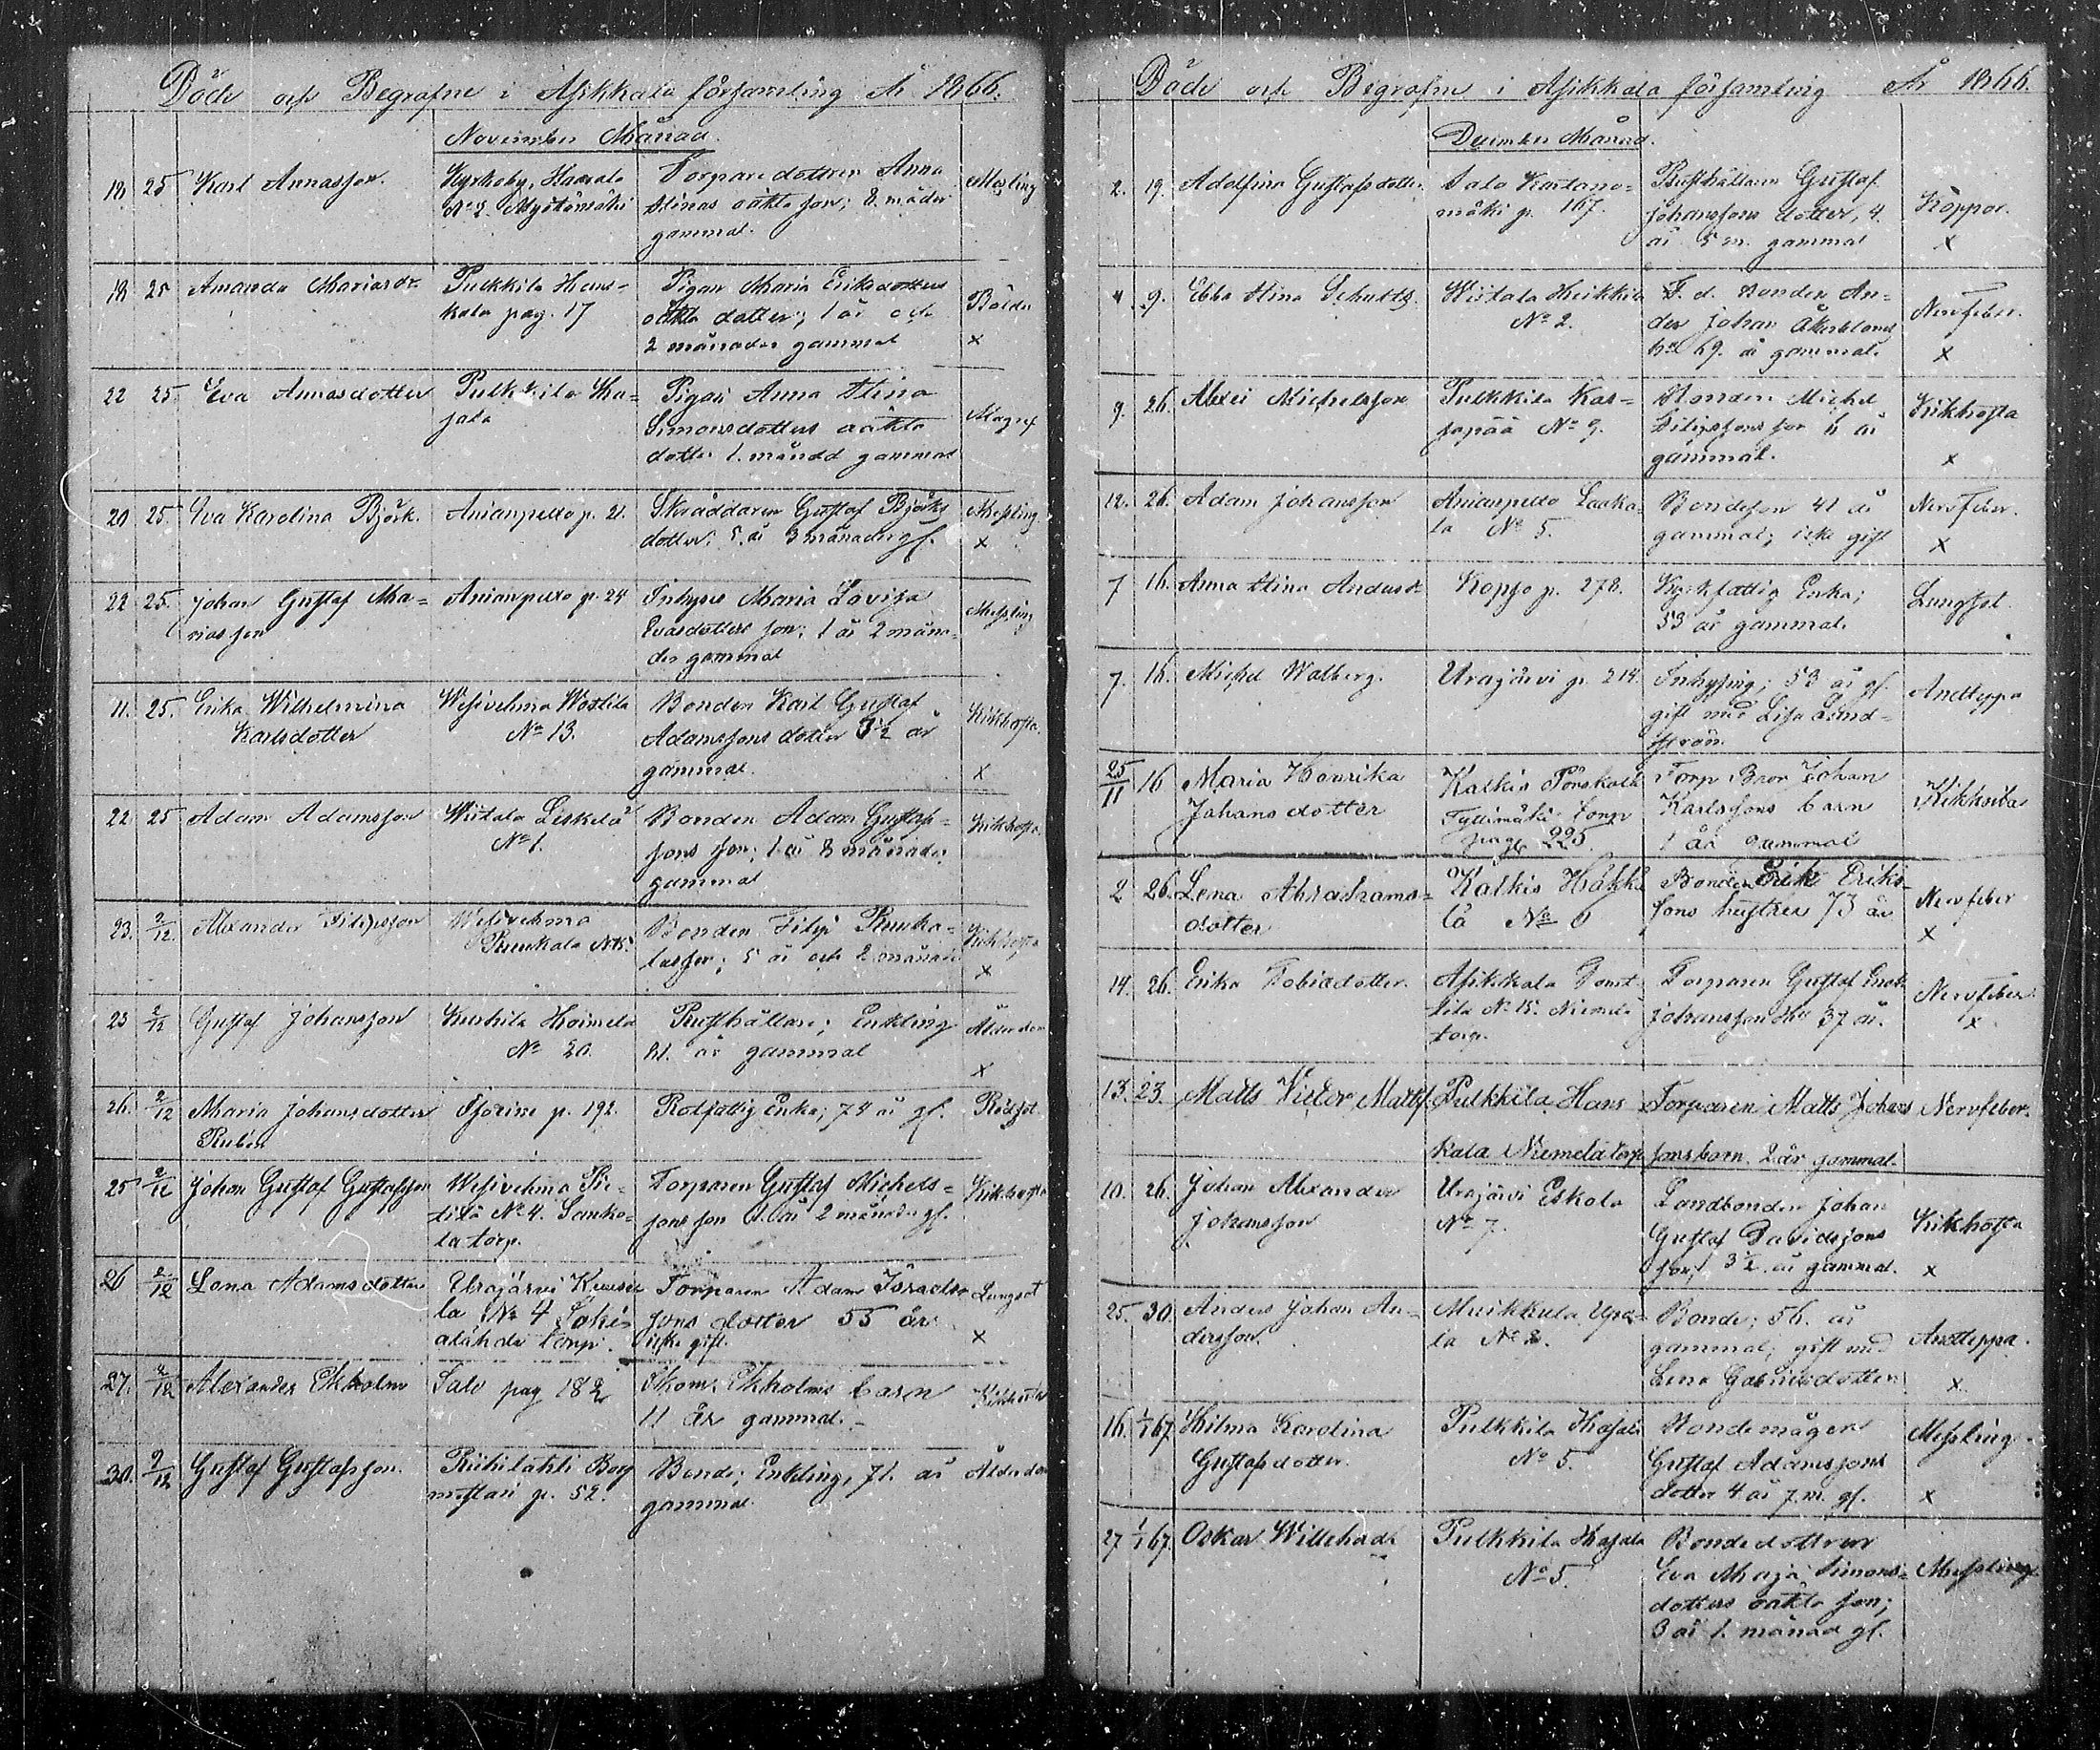 Döde och Begrafne i Asikkala församling År 1866.
November Månad.
18 25 Karl Annasson. Kyrkoby, Haarala Torparedottren Anna Mesling
No 2. Stinas oäkta son; 8 måder
gammal.
18 25 Amanda Mariasdr Pulkkila Hans- Pigan Maria Eriksdotters
kala pag. 17 oäkta dotter; 1 år och Bölder
2 månader gammal x
22 25 Eva Annasdotter Pulkkila Ha- Pigan Anna Stina
jala Simonsdotters oäkta Magref
dotter 1. månad gammal
20 25. Eva Karolina Björk. Anianpelto p. 21. Skräddaren Gustaf Björks Messling
dotter: 5. år 3 månader gl. x
22 25. Johan Gustaf Ma- Anianpelto p. 24 Inhyses Maria Lovisa Messling
riasson Evasdotters son; 1 år 2 måna-
der gammal
11. 25. Erika Wilhelmina Wesivehma Bonden Karl Gustaf Kikhosta.
Karlsdotter No 13. Adamssons dotter 3½ år
gammal. x
22 25 Adam Adamsson Wiitala Leskelä Bonden Adam Gustafs- Kikhosta
No 1. sons son; 1 år 8 månader
gammal
23. 2/12. Alexander Filipsson Wesivehma Bonden Filip Ruuka-
Ruukala No 5. lasson; 5 år och 2 månader Kikhosta
x
23 2/12 Gustaf Johansson Kurhila Rusthållare; Enkling Ålderdom
No 20. 81. år gammal
x
26. 2/12 Maria Johansdotter p. 192. Rotfattig Enka; 74 år gl. Rödsot
Rubin
25 2/12 Johan Gustaf Gustafsson Wesivehma Pie- Torparen Gustaf Michels- Kikhosta
tilä No 4. son son 1 år 2 månader gl.
torp.
26 2/12 Lena Adamsdotter Urajärvi Torparen Adam Israels- Lungsot
la No 4 sons dotter 55 år
torp. icke gift. x
27. 2/12 Alexander Ekholm Salo pag 182 Skom. Ekholms barn Kikhosta
11 år gammal. -
30. 2/12 Gustaf Gustafsson. Riihilahti Borg Bonde; Enkling, 71. år Ålderdom
mästari p. 52. gammal.
Döde och Begrafne i Asikkala församling År 1866.
December Månad.
2. 19. Adolfina Gustafsdotter Salo Kartano- Rusthållaren Gustaf
mäki p. 167. Johanssons dotter, 4. Koppor.
år 5 m. gammal x
4 9. Ebba Stina Schultz Wiitala Heikkilä F. d. Bonden An-
No 2. ders Johan Åkerbloms Nervfeber.
69. år gammal. x
9. 26. Alexei Michelsson Pulkkila Kar- Bonden Michel Kikhosta
japää No 9. Filipssons son 6 år
gammal. x
12. 26. Adam Johansson Anianpelto Laaka- Bondeson 41 år Nervfeber.
la No 5. gammal; icke gift x
7 16. Anna Stina Andersdr Kopso p. 278. Kyrkfattig Enka; Lungsot.
53 år gammal.
7. 16. Michel Walberg. Urajärvi p. 214. Inhysing; 53 år gl. Andteppa
gift med Lisa Lind-
ström.
25/11 16 Maria Henrika Kalkis Torp Bror Johan
Johansdotter Torp Karlssons barn Kikhosta
pag. 225. 1 år gammal
2 26. Lena Abrahams- Kalkis Bonden Erik Eriks- Nervfeber
dotter lä No 6 sons hustru 73 år x
14. 26. Erika Tobiasdotter. Asikkala Tomt- Torparen Gustaf Nervfeber
tila No 15. Niemelä Johansson Hu 37 år. x
torp.
13. 23. Matts Victor Matts. Pulkkila Hans Torparen Matts Johans Nervfeber.
kala Niemelä torp sons barn. 2 år gammal.
10. 26. Johan Alexander Urajärvi Eskola Landbonden Johan
Johansson No 7. Gustaf Davidssons Kikhosta
son; 3½ år gammal. x
25. 30. Anders Johan An- Muikkula Upo- Bonde; 56. år
dersson. la No 2. gammal; gift med Andteppa.
Lena Gabrielsdotter x
16. 1/1 67 Hilma Karolina Pulkkila Hajala Bondemågen Messling
Gustafsdotter. No 5. Gustaf Adamssons
dotter 4 år 7. m. gl. x
27 1/1 67 Oskar Willehad. Pulkkila Hajala Bondedottren
No 5. Eva Maja Simons- Messling
dotters oäkta son;
3 år 1. månad gl.